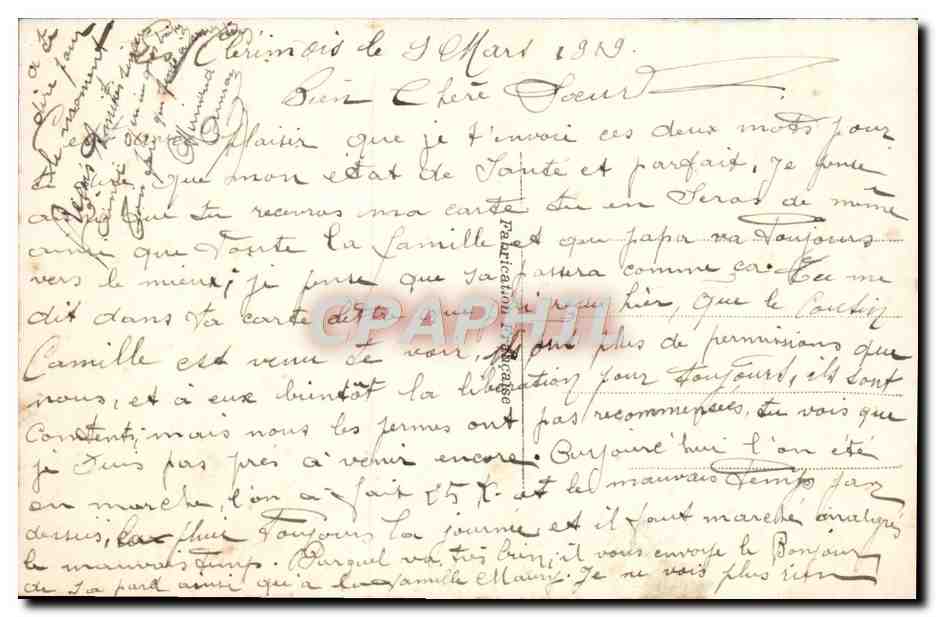 Les Clérimois le 9 Mars 1919.
Bien Chère Sœur
C'est avec plaisir que je t'invoie ces deux mots pour
te dire que mon état de Santé et parfait, je pense
ainsi que tu recevras ma carte tu en Seras de même
ainsi que Toute la famille et que papa va Toujours
vers le mieux, je pense que sa passera comme ça. Tu me
dit dans ta carte que j'ai reçu hier, que le Cousin
Camille est venu te voir, plus de permissions que
nous, et à eux bientôt la libération pour Toujours, ils sont
Contents, mais nous les permes ont pas recommencées, tu vois que
je suis pas près à venir encore. Aujourd'hui l'on été
en marche, l'on a fait 25 K. et le mauvais Temps par
dessus, la pluie Toujours la journée, et il faut marché malgrés
le mauvais Temps. va très bien, il vous envoye le Bonjour
de sa pard ainsi qu'à la famille Maury. Je ne vois plus rien
à te
dire pour
le moment
Fabrication Française
CPAPHIL